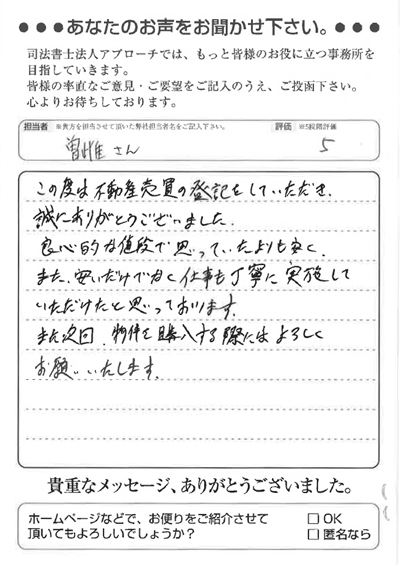 ●●●あなたのお声をお聞かせ下さい。●●●
司法書士法人アプローチでは、もっと皆様のお役に立つ事務所を
目指していきます。
皆様の率直なご意見・ご要望をご記入のうえ、ご投函下さい。
心よりお待ちしております。
担当者 ※貴方を担当させて頂いた弊社担当者名をご記入下さい。 評価 ※5段階評価
さん 5
この度は不動産売買の登記をしていただき、
誠にありがとうございました。
良心的な値段で思っていたよりも安く、
また、安いだけでなく仕事も丁寧に実施して
いただけたと思っております。
また次回、物件を購入する際にはよろしく
お願いいたします。
貴重なメッセージ、ありがとうございました。
ホームページなどで、お便りをご紹介させて
頂いてもよろしいでしょうか?
□ OK
□ 匿名なら